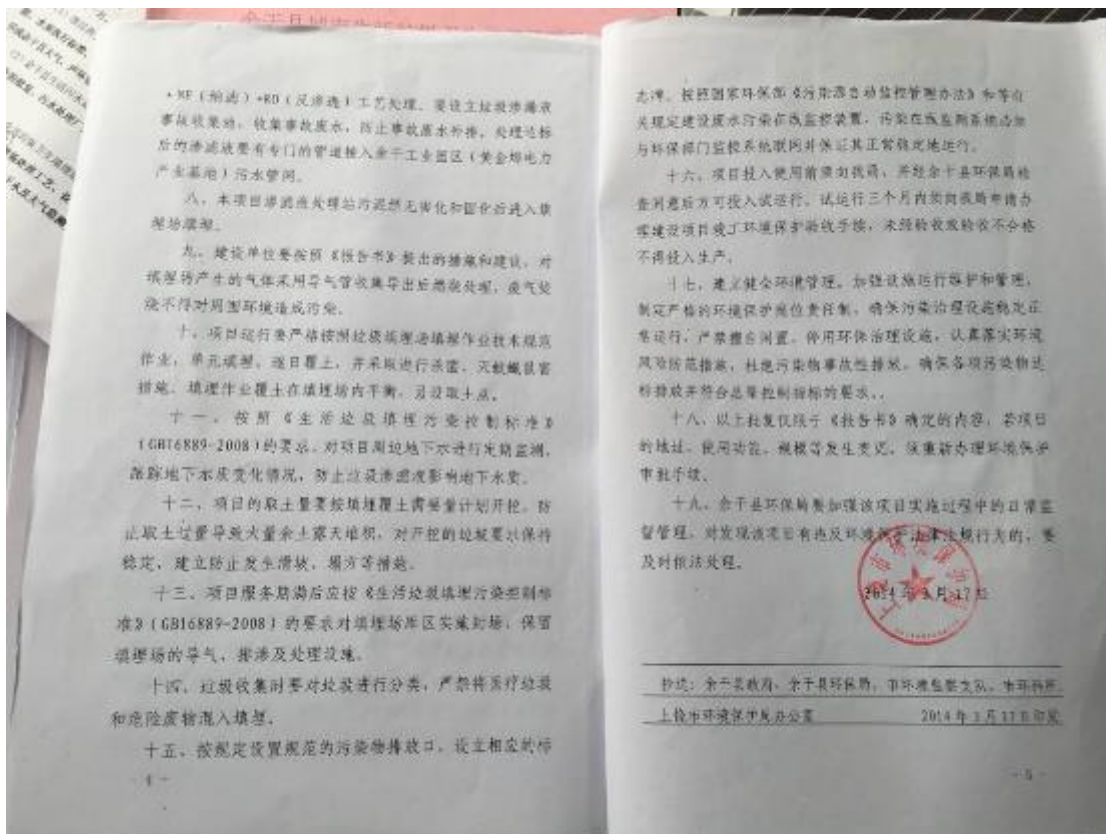 +NF（纳滤）+RO（反渗透）工艺处理。要设立垃圾渗滤液
事故收集池，收集事故废水，防止事故废水外排，处理达标
后的渗滤液要有专门的管道接入余干工业园区（黄金埠电力
产业基地）污水管网。
八、本项目渗滤液处理站污泥须无害化和固化后进入填
埋场填埋。
九、建设单位要按照《报告书》提出的措施和建议，对
填埋场产生的气体采用导气管收集导出后燃烧处理，废气焚
烧不得对周围环境造成污染。
十、项目运行要严格按照垃圾填埋场填埋作业技术规范
作业，单元填埋，逐日覆土，并采取进行杀菌、灭蚊蝇鼠害
措施。填埋作业覆土在填埋场内平衡，另设取土点。
十一、按照《生活垃圾填埋污染控制标准》
（GB16889-2008）的要求，对项目周边地下水进行定期监测，
跟踪地下水质变化情况，防止垃圾渗滤液影响地下水质。
十二、项目的取土量要按填埋覆土需要量计划开挖，防
止取土过量导致大量余土露天堆积，对开挖的边坡要求保持
稳定，建立防止发生滑坡、塌方等措施。
十三、项目服务期满后应按《生活垃圾填埋污染控制标
准》（GB16889-2008）的要求对填埋场库区实施封场，保留
填埋场的导气、排渗及处理设施。
十四、垃圾收集时要对垃圾进行分类，严禁将医疗垃圾
和危险废物混入填埋。
十五、按规定设置规范的污染物排放口，设立相应的标
- 4 -
志牌。按照国家环保部《污染源自动监控管理办法》和等有
关规定建设废水污染在线监控装置，污染在线监测系统必须
与环保部门监控系统联网并保证其正常稳定地运行。
十六、项目投入使用前须向我局，并经余干县环保局检
查同意后方可投入试运行。试运行三个月内须向我局申请办
理建设项目竣工环境保护验收手续，未经验收或验收不合格
不得投入生产。
十七、建立健全环境管理。加强设施运行维护和管理，
制定严格的环境保护岗位责任制，确保污染治理设施稳定正
常运行，严禁擅自闲置、停用环保治理设施，认真落实环境
风险防范措施，杜绝污染物事故性排放，确保各项污染物达
标排放并符合总量控制指标的要求。。
十八、以上批复仅限于《报告书》确定的内容，若项目
的地址、使用功能、规模等发生变更，须重新办理环境保护
审批手续。
十九、余干县环保局要加强该项目实施过程中的日常监
督管理，对发现该项目有违反环境保护法律法规行为的，要
及时依法处理。
2014年3月17日
抄送：余干县政府、余干县环保局，市环境监察支队、市环科所
上饶市环境保护局办公室 2014年3月17日印发
- 5 -